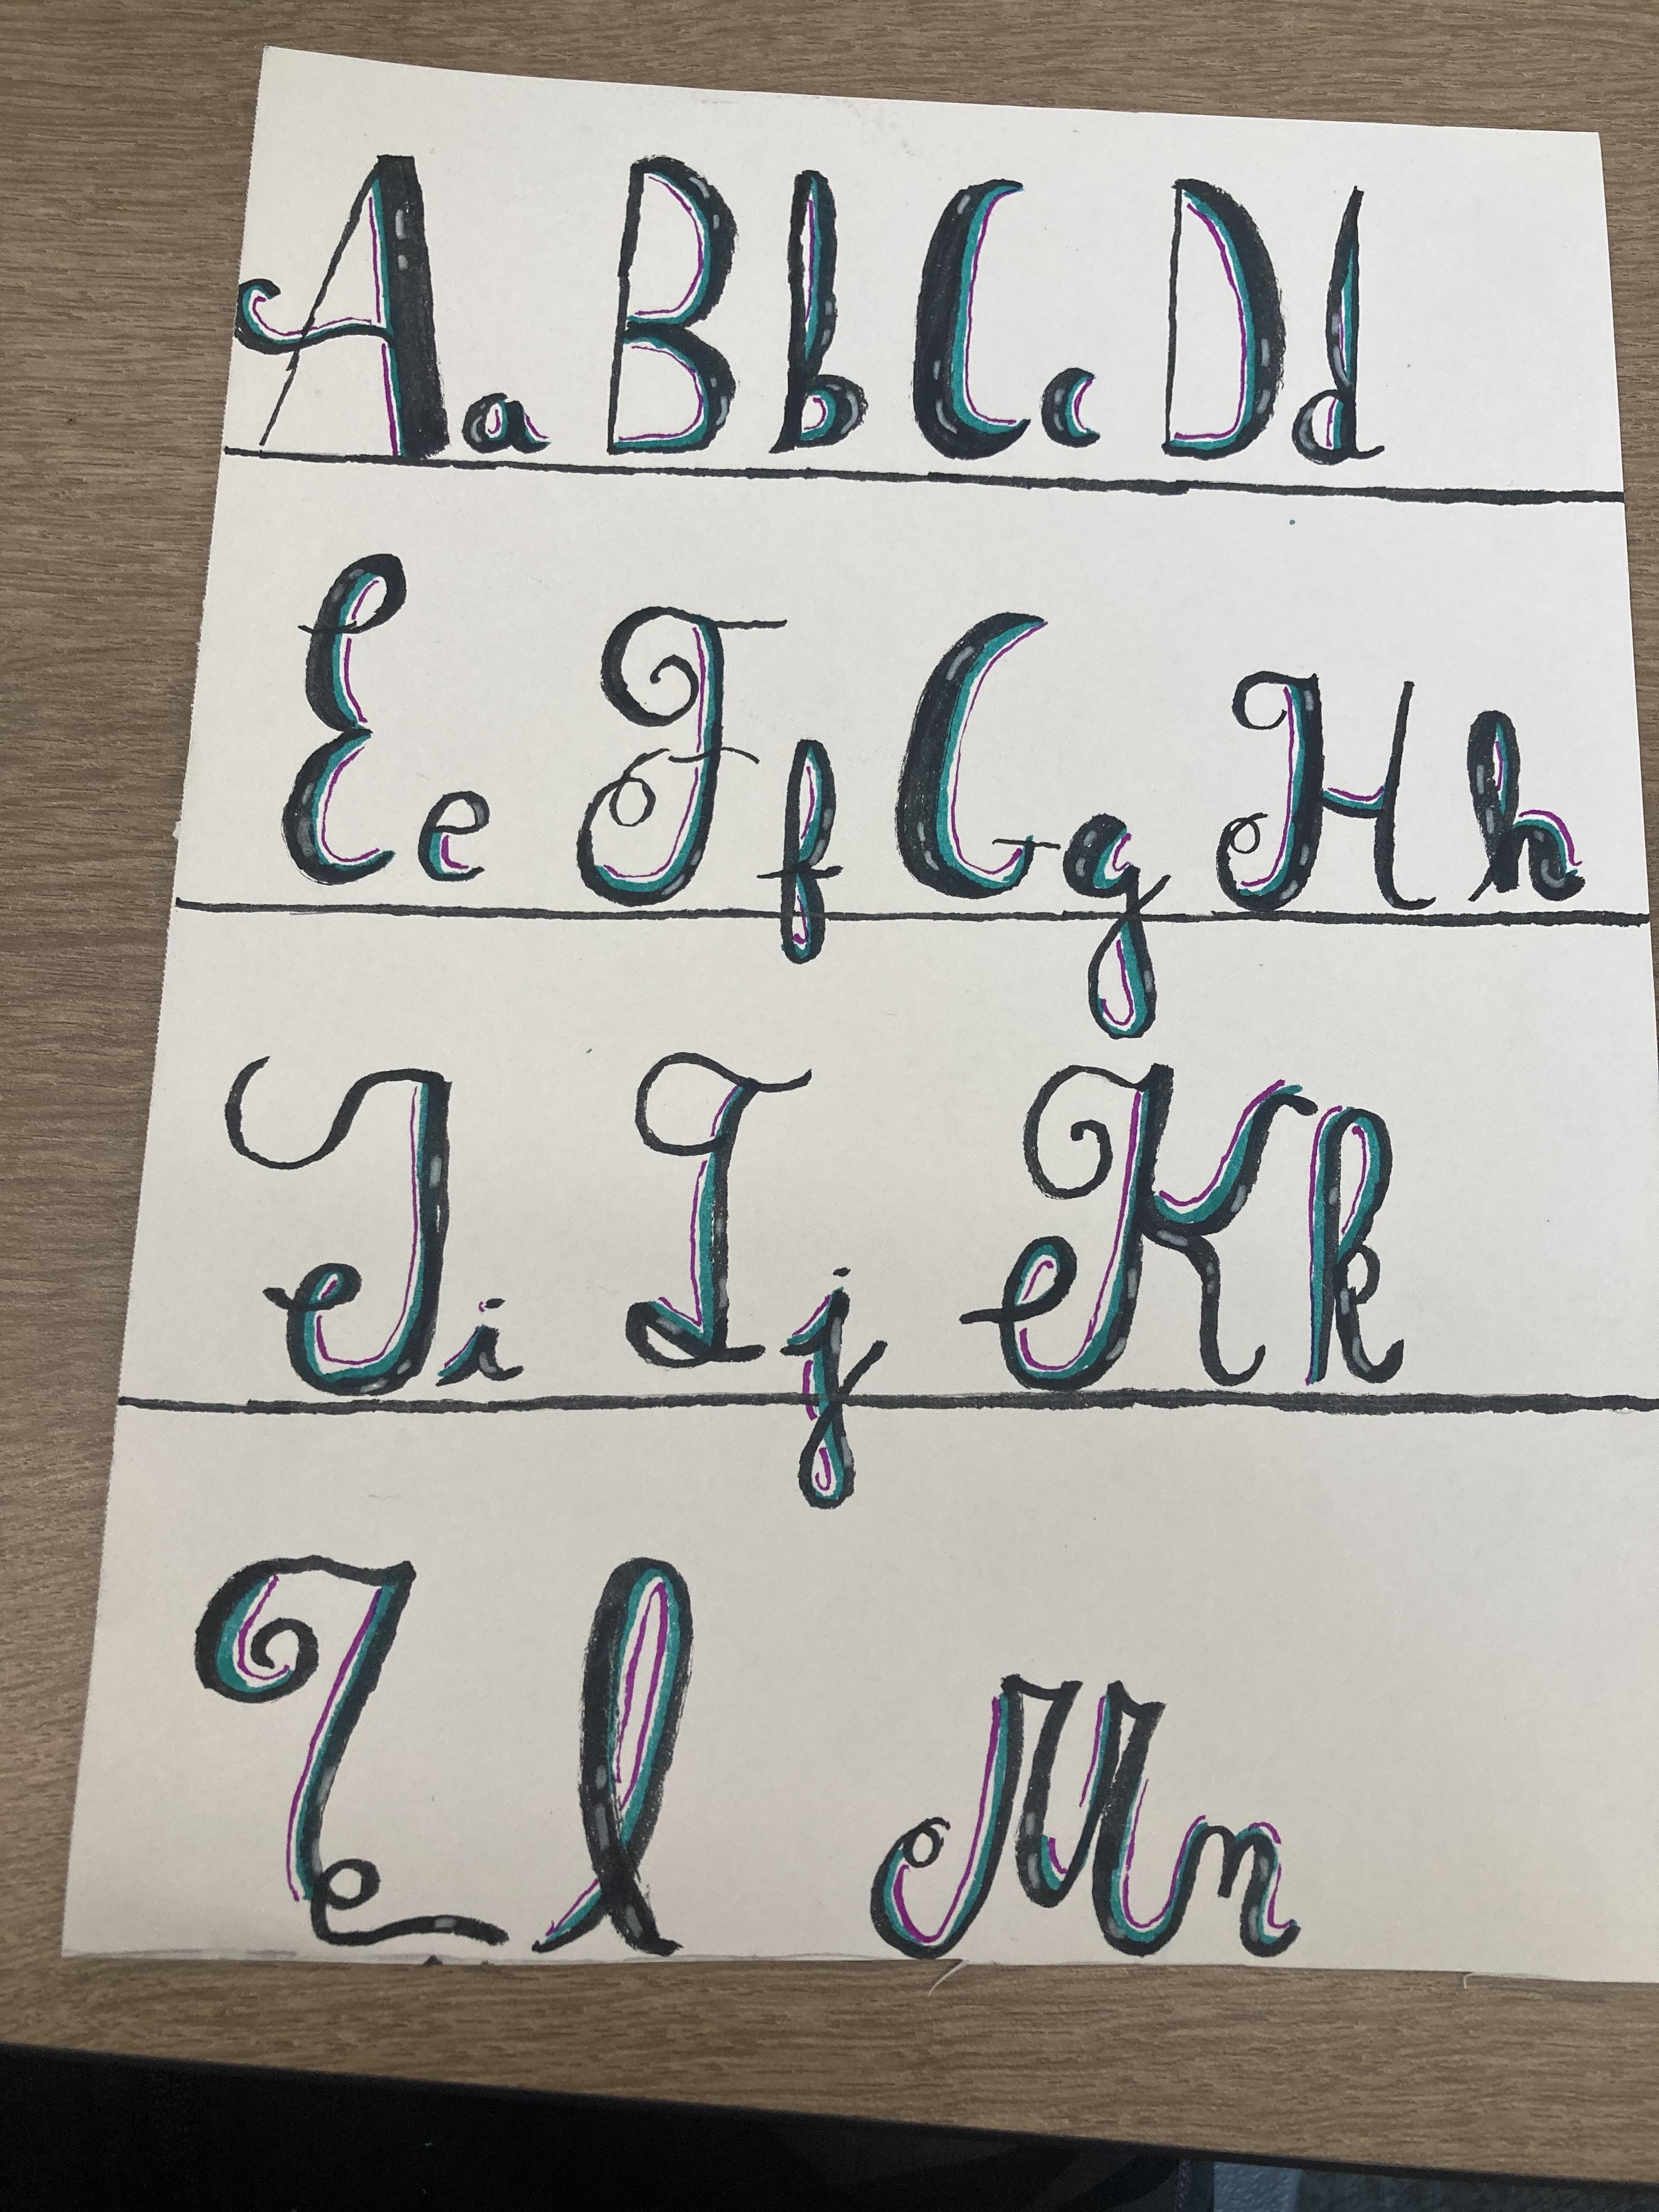 Aa Bb Cc Dd
Ee Ff Gg Hh
Ii Jj Kk
Ll Mn